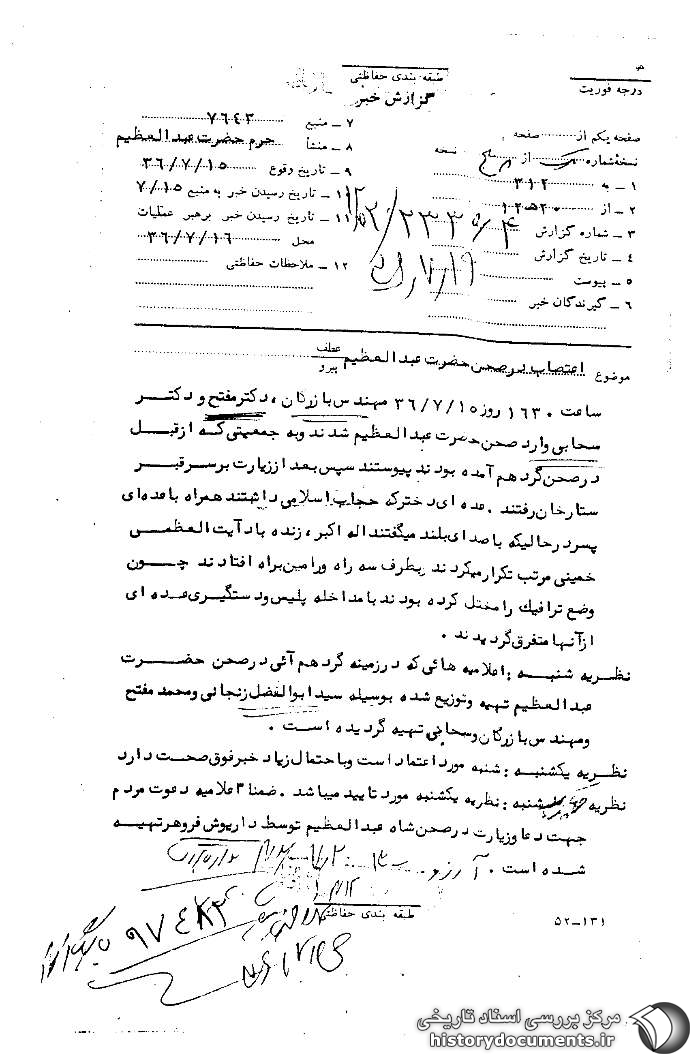 طبقه بندی حفاظتی
درجه فوریت
گزارش خبر
صفحه یکم از صفحه
نسخه شماره از نسخه
۱ـ به ۳۱۲
۲ـ از
۳ـ شماره گزارش
۴ـ تاریخ گزارش
۵ـ پیوست
۶ـ گیرندگان خبر
۷ـ منبع ۷۶۴۳
۸ـ منشأ حرم حضرت عبدالعظیم
۹ـ تاریخ وقوع ۳۶/۷/۱۵
۱۰ـ تاریخ رسیدن خبر به منبع ۷/۱۵
۱۱ـ تاریخ رسیدن خبر برهبر عملیات
محل ۳۶/۷/۱۶
۱۲ـ ملاحظات حفاظتی
عطف
موضوع اعتصاب در صحن حضرت عبدالعظیم
پیرو
ساعت ۱۶۳۰ روز ۳۶/۷/۱۵ مهندس بازرگان ، دکتر مفتح و دکتر
سحابی وارد صحن حضرت عبدالعظیم شدند و به جمعیتی که از قبل
در صحن گرد هم آمده بودند پیوستند سپس بعد از زیارت بر سر قبر
ستارخان رفتند . عده ای دختر که حجاب اسلامی داشتند همراه با عده‌ای
پسر در حالیکه با صدای بلند میگفتند اله اکبر ، زنده باد آیت العظمی
خمینی مرتب تکرار میکردند بطرف سه راه ورامین براه افتادند چون
وضع ترافیك را مختل کرده بودند با مداخله پلیس و دستگیری عده ای
از آنها متفرق گردیدند .
نظریه شنبه : اعلامیه هائی که در زمینه گرد هم آئی در صحن حضرت
عبدالعظیم تهیه و توزیع شده بوسیله سید ابوالفضل زنجانی و محمد مفتح
و مهندس بازرگان و سحابی تهیه گردیده است .
نظریه یکشنبه : شنبه مورد اعتماد است و با احتمال زیاد خبر فوق صحت دارد
نظریه شنبه : نظریه یکشنبه مورد تایید میباشد . ضمنا ۳ اعلامیه دعوت مردم
جهت دعا و زیارت در صحن شاه عبدالعظیم توسط داریوش فروهر تهیه
شده است . آرزو
طبقه بندی حفاظتی
۵۲ـ۱۳۱
۹۷۴۸۲
مرکز بررسی اسناد تاریخی
historydocuments.ir